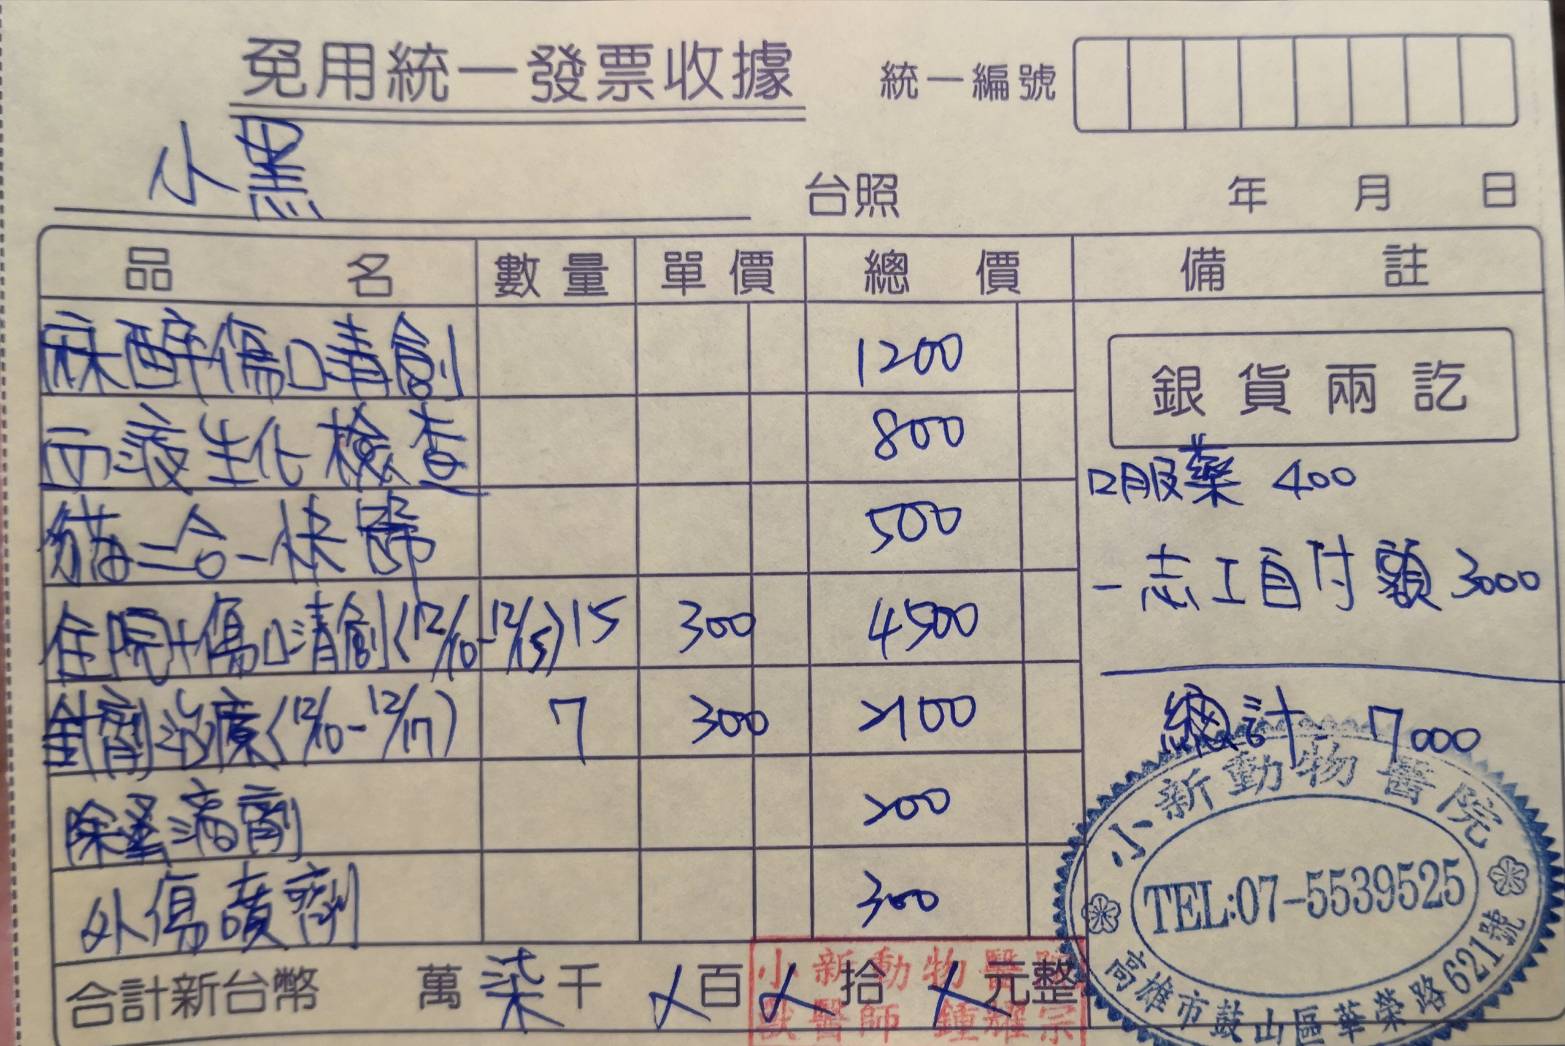 免用統一發票收據 統一編號
小黑 台照 年 月 日
品名 數量 單價 總價 備註
麻醉傷口清創 1200
血液生化檢查 800
貓二合一快篩 500
住院+傷口清創(12/10-12/15) 15 300 4500
針劑治療(12/10-12/17) 7 300 2100
除蚤滴劑 200
外傷噴劑 300
銀貨兩訖
口服藥 400
-志工自付額 3000
總計 7000
合計新台幣 萬柒千 百 拾 元整
小新動物醫院
獸醫師 鍾耀宗
小新動物醫院
TEL:07-5539525
高雄市鼓山區華榮路621號